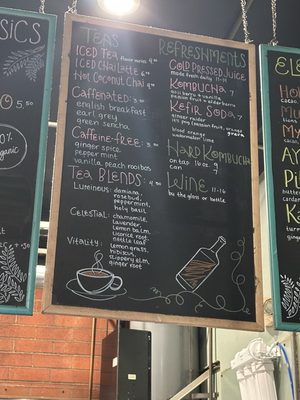 SICS
O 5.50
0%
organic
5 +.50
TEAS
ICED TEA flavor varies 4.
ICED CHAI LATTE 6.
HOT COCONUT CHAI
CAFFEINATED: 3.50
english breakfast
earl grey
green sencha
CAFFEINE-FREE: 3.50
ginger spice
pepper mint
vanilla peach rooibos
TEA BLENDS: 4.50
LUMINOUS: damiana,
rosebud,
peppermint,
holy basil
CELESTIAL: chamomile,
lavender
lemon balm,
licorice root
nettle leaf
VITALITY: lemon grass,
hibiscus,
slippery elm,
ginger root
REFRESHMENTS
COLD PRESSED JUICE
made fresh daily 11-14
KOMBUCHA 7
KEFIR SODA 7
ginger raider
HARD KOMBUCHA
on tap 10oz 7
WINE 11-16
by the glass or bottle
EL
HO
MU
AY
PI
KA